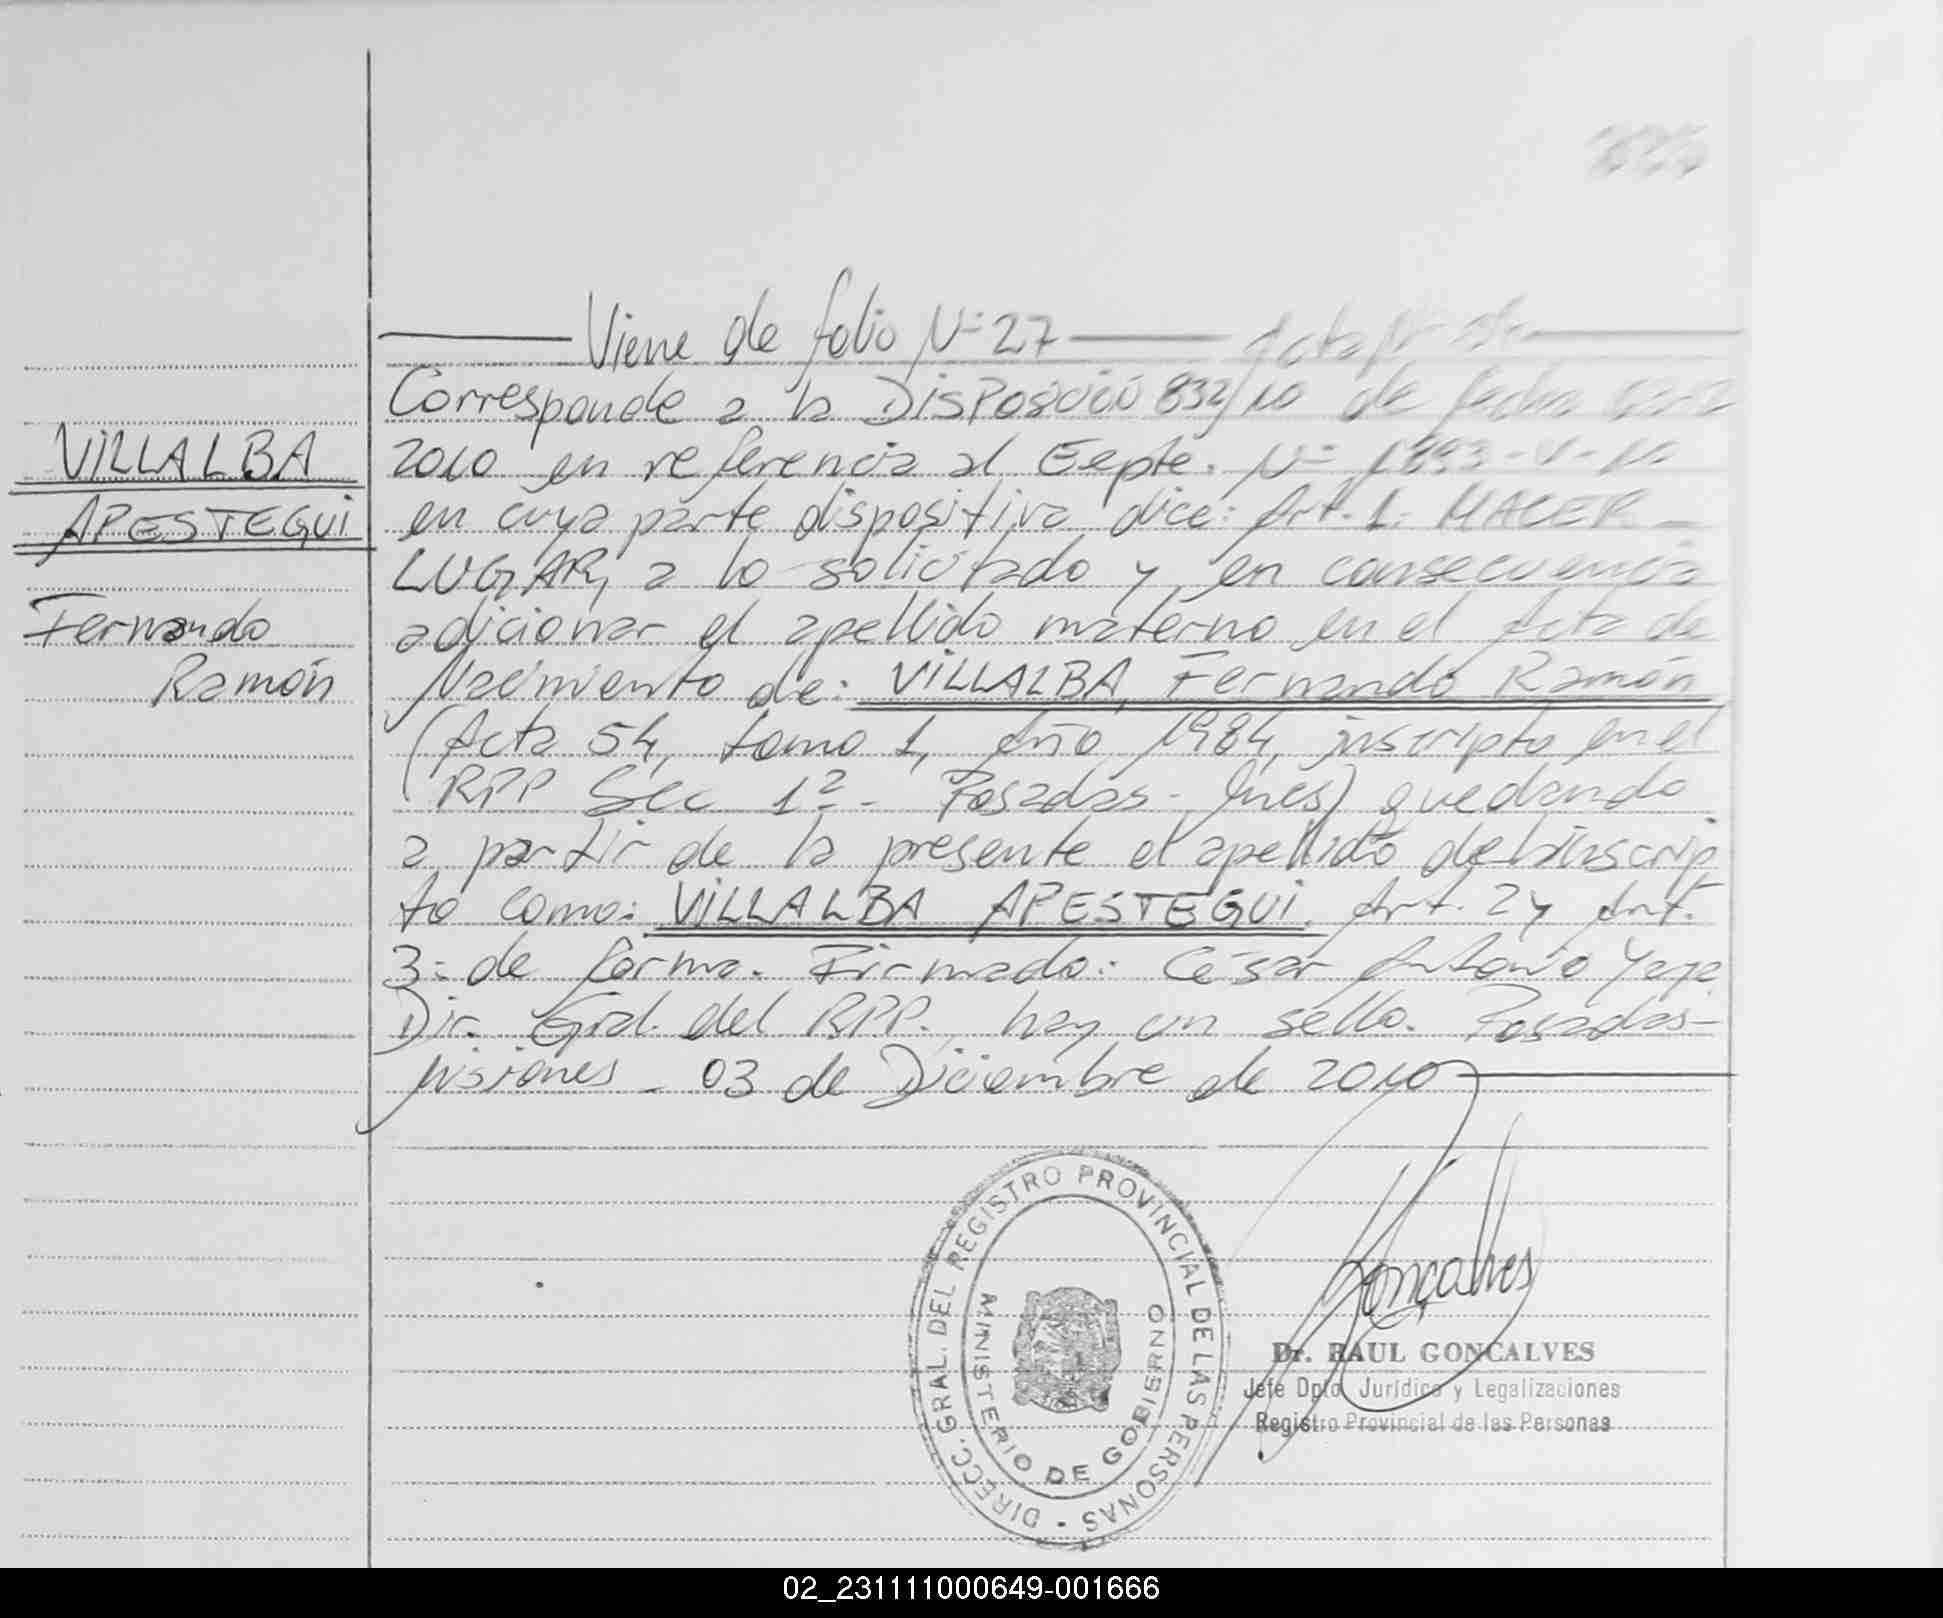 Viene de folio Nº 27 — Acta Nº 54
Corresponde a la Disposición 832/10 de fecha
2010 en referencia al Expte. Nº 1893-V-10
en cuya parte dispositiva dice: Art. 1: HACER
LUGAR, a lo solicitado y en consecuencia
adicionar el apellido materno en el Acta de
Nacimiento de: VILLALBA, Fernando Ramón
(Acta 54, tomo 1, Año 1984, inscripto en el
RPP Sec 1ª - Posadas - Mnes) quedando
a partir de la presente el apellido del inscrip
to como: VILLALBA APESTEGUI. Art. 2 y Art.
3: de forma. Firmado: César Antonio Yaya
Dir. Gral. del RPP., hay un sello. Posadas-
Misiones - 03 de Diciembre de 2010
VILLALBA
APESTEGUI
Fernando
Ramón
DIRECC. GRAL. DEL REGISTRO PROVINCIAL DE LAS PERSONAS -
MINISTERIO DE GOBIERNO
Gonçalves
Dr. RAUL GONCALVES
Jefe Dpto. Jurídico y Legalizaciones
Registro Provincial de las Personas
02_231111000649-001666